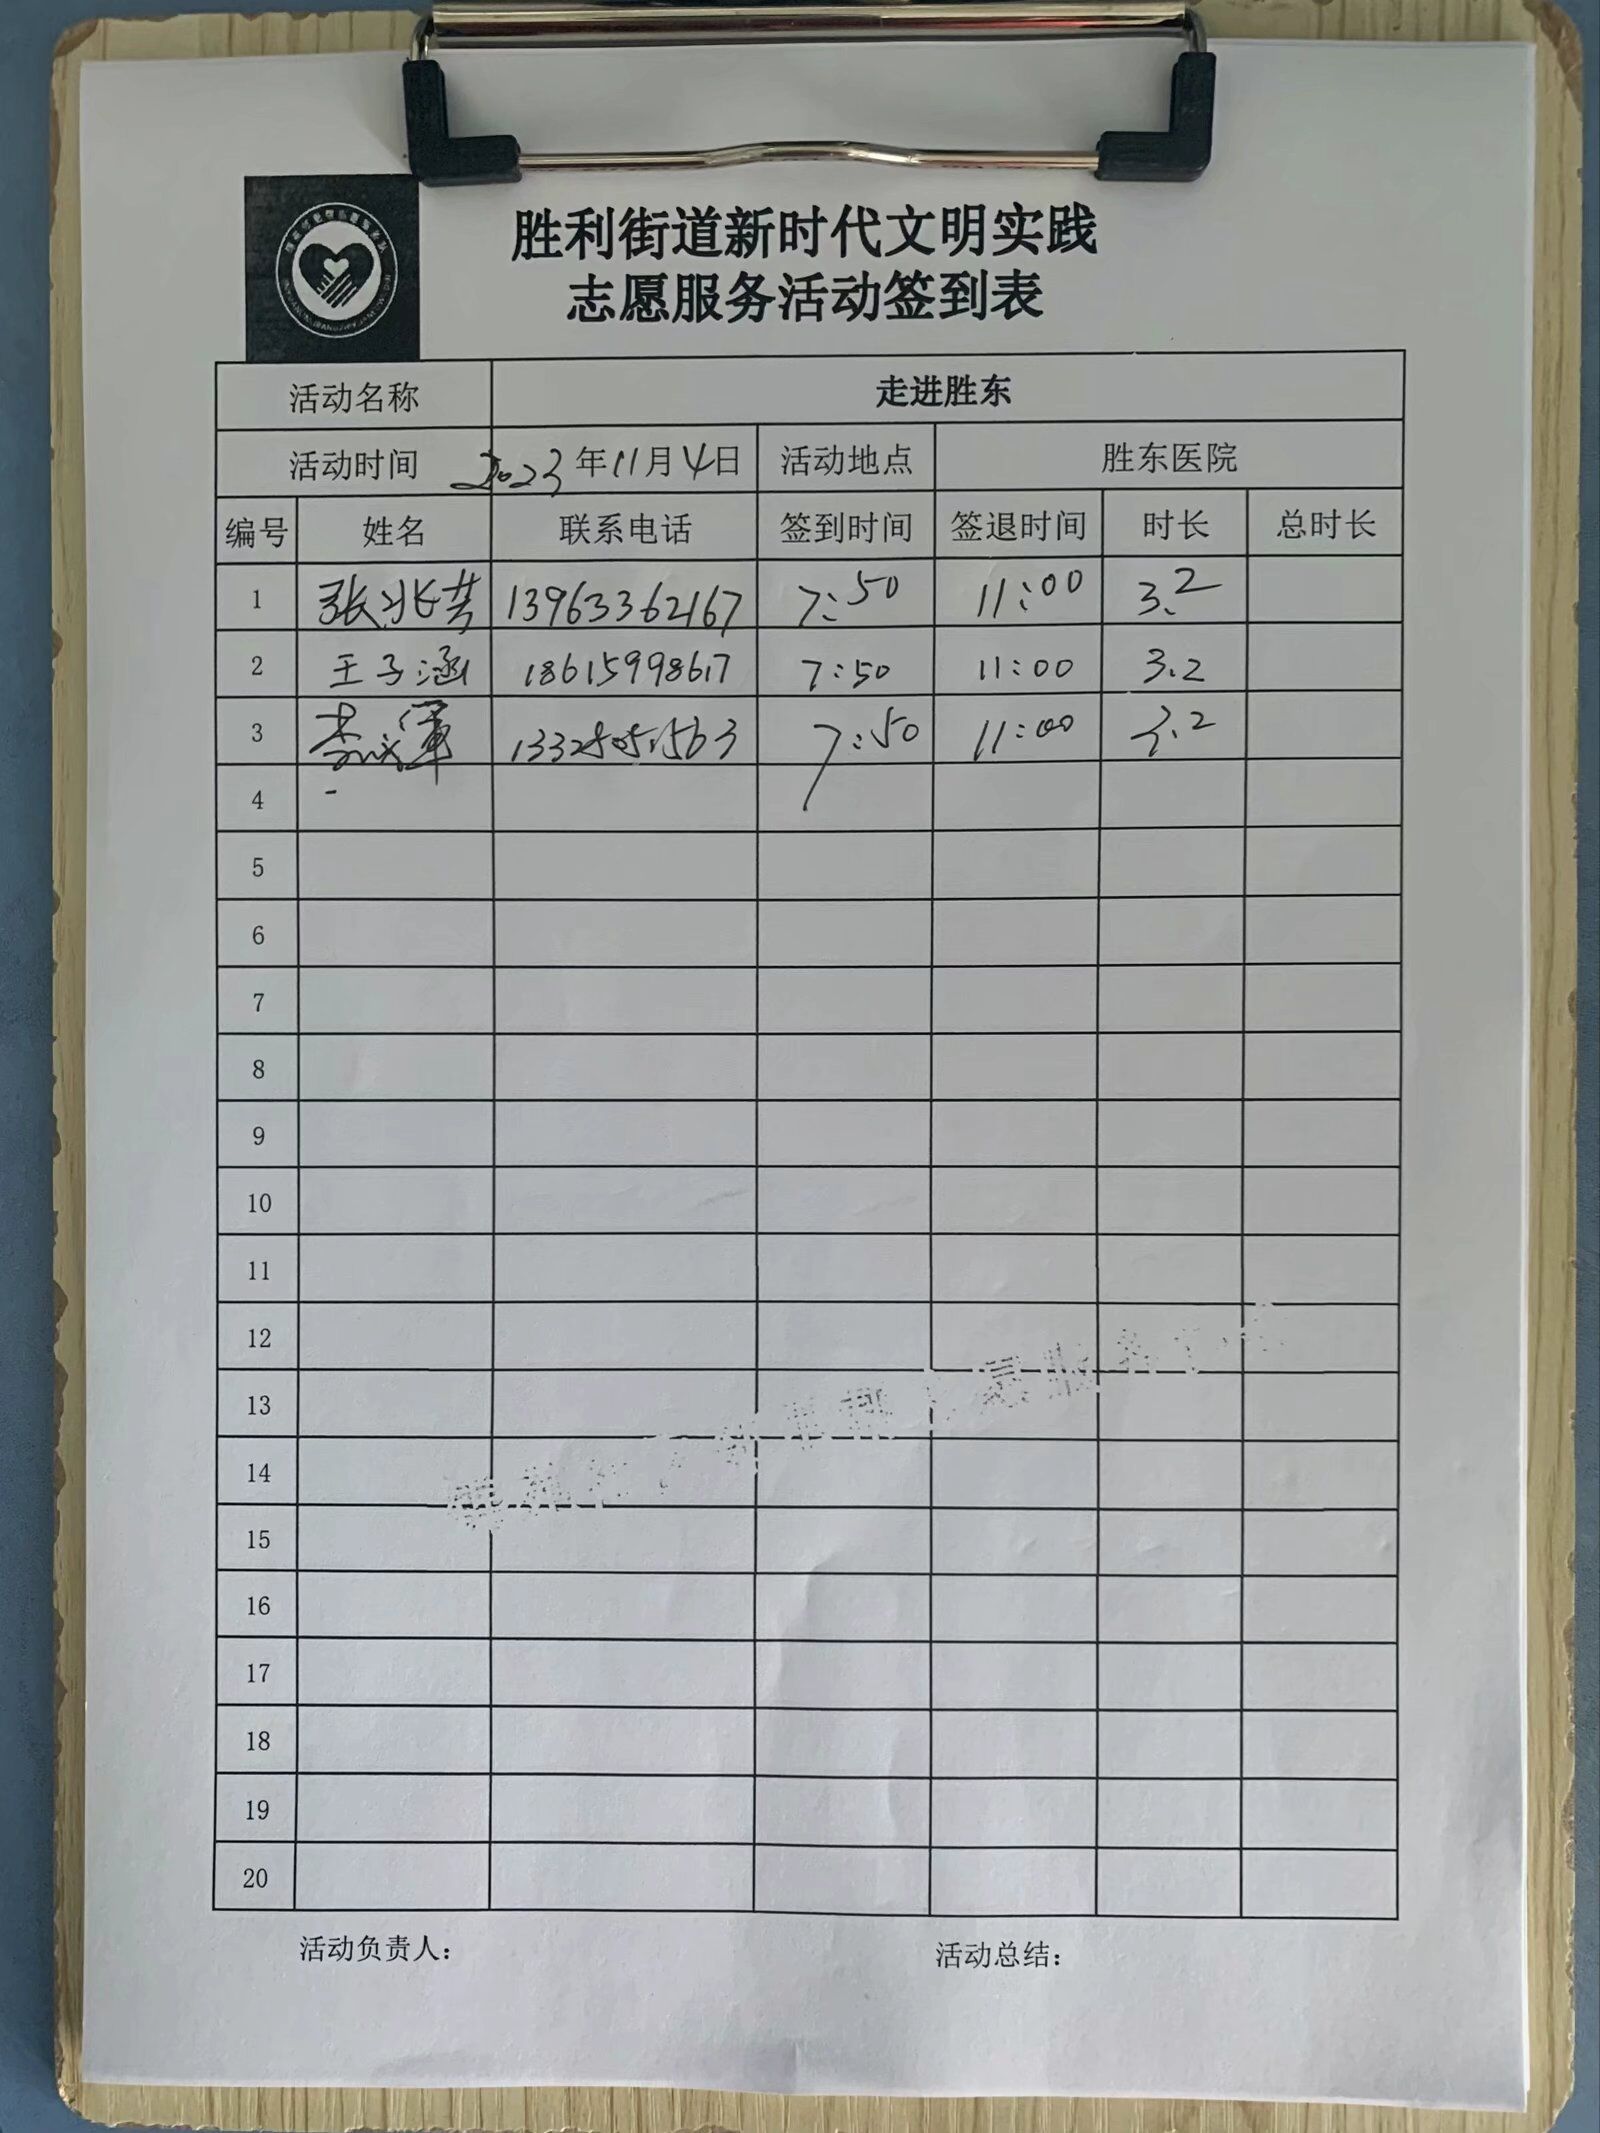 胜利街道新时代文明实践
志愿服务活动签到表
活动名称 走进胜东
活动时间 2023年11月4日 活动地点 胜东医院
编号 姓名 联系电话 签到时间 签退时间 时长 总时长
1 张兆芸 13963362167 7:50 11:00 3.2
2 王子涵 18615998617 7:50 11:00 3.2
3 李成军 13325251563 7:50 11:00 3.2
4
5
6
7
8
9
10
11
12
13
14
15
16
17
18
19
20
活动负责人: 活动总结: